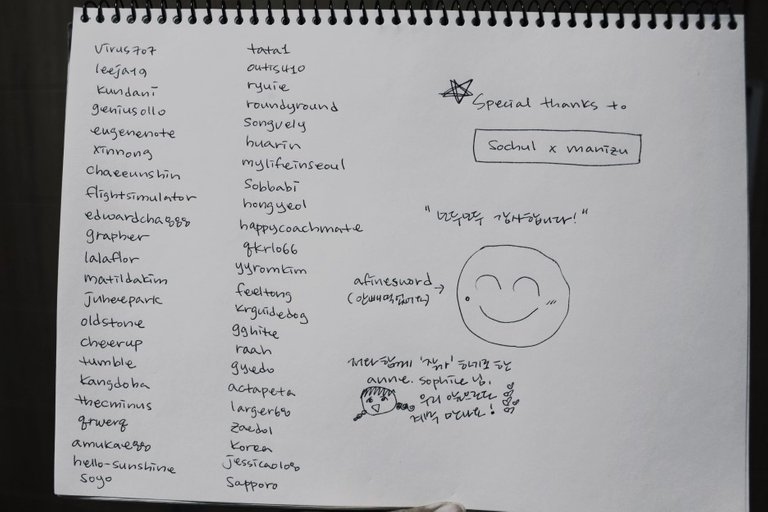 virus707
leeja19
kundani
geniusollo
eugenenote
xinnong
chaeeunshin
flightsimulator
edwardcha888
grapher
lalaflor
matildakim
juheepark
oldstone
cheerup
tumble
kangdoba
thecminus
qrwerq
amukae88
hello-sunshine
soyo
tata1
outis410
ryuie
roundyround
songvely
huarin
mylifeinseoul
sobbabi
hongyeol
happycoachmate
qkrlo66
yyromkim
feeltong
krguidedog
gghite
raah
gyedo
actapeta
larger68
zaedol
korea
jessicao108
sapporo
Special thanks to
Sochul x manizu
"모두모두 감사합니다!"
afinesword →
저와 함께 '잠깐' 하기로 한
anne. sophie 님,
우리
계속 만나요!